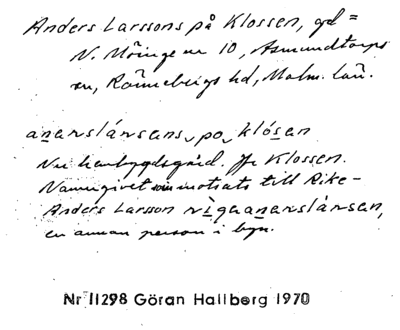 Anders Larssons på Klossen, gd =
N. Möinge nr 10, Asmundtorps
sn, Rönnebergs hd, Malm. län.
ananslánsens po klósen
Nu hembygdsgård. Jfr Klossen.
Namngivet som motsats till Rike-
Anders Larsson rìgaananslánsen,
en annan person i byn.
Nr 11298 Göran Hallberg 1970